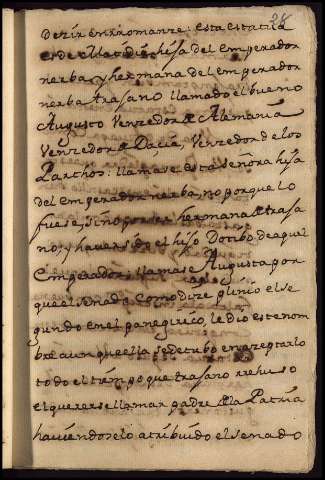 28
dezir en Romanze: esta estatua
es de Marcia, hija del emperador
nerba, y hermana del emperador
nerba trasano llamado el bueno
Augusto Venzedor de Alemania
Venzedor de Dacia, Venzedor de los
Parthos: llamase esta señora hija
del emperador nerba, no porque lo
fuese, sino por ser hermana de trasa
no, y haver sido el hijo Dotibo de aquel
emperador; llamase Augusta por
que el senado como dize plinio el se
gundo en el panegirico, le dio este nom
bre aunque ella se detubo en azeptarlo
todo el tiempo que trasano rrehuso
el quererse llamar padre de la Patria
haviendoselo atribuido el senado